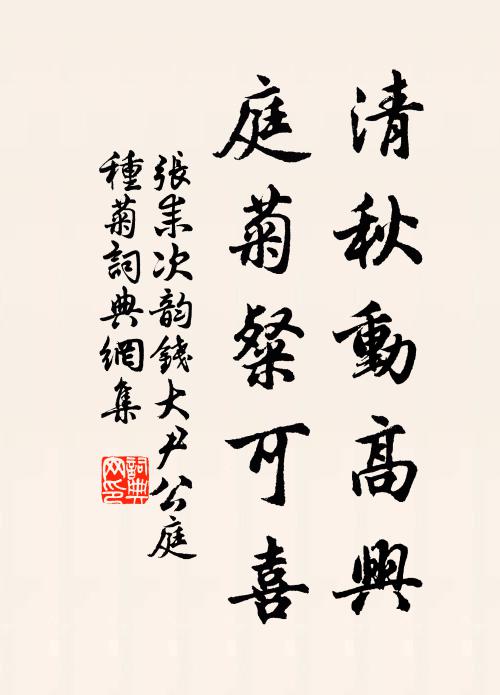 清秋動高興
庭菊粲可喜
張耒次韵錢大尹公庭
種菊詞典網集
詞典網印